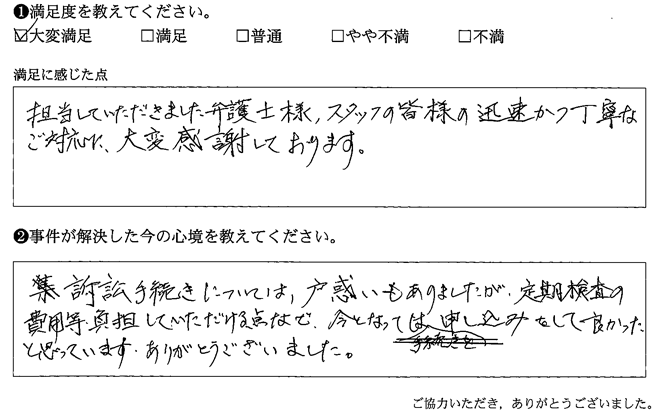 ❶満足度を教えてください。
☑大変満足 □満足 □普通 □やや不満 □不満
満足に感じた点
担当していただきました弁護士様,スタッフの皆様の迅速かつ丁寧な
ご対応に、大変感謝しております。
❷事件が解決した今の心境を教えてください。
集 訴訟手続きについては、戸惑いもありましたが、定期検査の
費用等負担していただける点など、今となっては申し込みをして良かった
と思っています。ありがとうございました。
ご協力いただき,ありがとうございました。